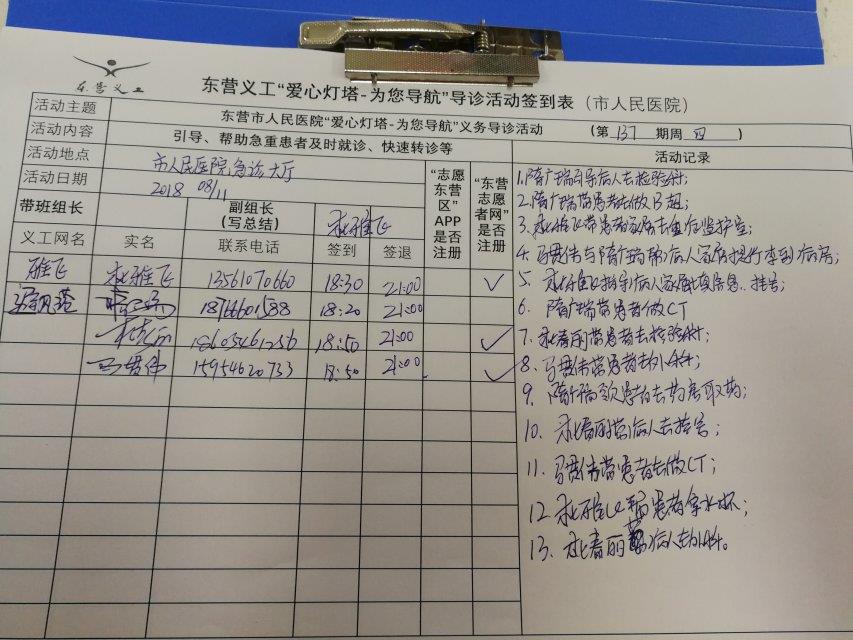 东营义工
东营义工“爱心灯塔-为您导航”导诊活动签到表（市人民医院）
活动主题 东营市人民医院“爱心灯塔-为您导航”义务导诊活动 （第 137 期周 四 ）
活动内容 引导、帮助急重患者及时就诊、快速转诊等
活动地点 市人民医院急诊大厅
活动日期 2018 08/11
带班组长 副组长（写总结）
“志愿东营区”APP是否注册
“东营志愿者网”是否注册
义工网名 实名 联系电话 签到 签退
雅飞 13561070660 18:30 21:00 ✓
18766601588 18:20 21:00
18605461256 18:50 21:00 ✓
15954620733 18:50 21:00 ✓
活动记录
1.隋广瑞引导病人去检验科;
2.隋广瑞带患者去做B超;
3. 带患者家属去重症监护室;
4. 与隋广瑞帮病人家属提行李到病房;
5. 指导病人家属填信息、挂号;
6. 隋广瑞带患者做CT
7. 春丽带患者去检验科;
8. 带患者去外科;
9. 患者去药房取药;
10. 春丽带病人去挂号;
11. 带患者去做CT;
12. 患者拿水杯;
13. 春丽带病人去外科。